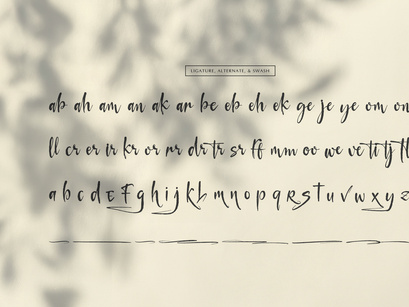 LIGATURE, ALTERNATE, & SWASH
ab ah am an ak ar be eb eh ek ge je ye om on
ll cr er ir kr or rr dr tr sr ff mm oo we ve ti tj tl
a b c d e f g h i j k b m n o p q r s t u v w x y z